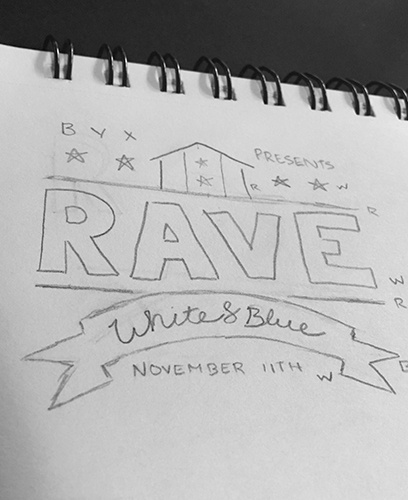 BYX PRESENTS
R W
R
RAVE
W
R
White & Blue
B
NOVEMBER 11TH W